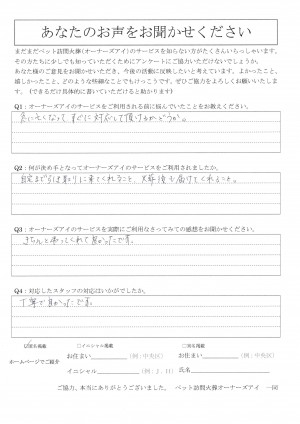 あなたのお声をお聞かせください
まだまだペット訪問火葬(オーナーズアイ)のサービスを知らない方がたくさんいらっしゃいます。
その方たちに少しでも知っていただくためにアンケートにご協力いただけないでしょうか。
あなた様のご意見をお聞かせいただき、今後の活動に反映したいと考えています。よかったこと、
嬉しかったこと、どのような些細なことでもけっこうです。ぜひご協力をよろしくお願いいたしま
す。(できるだけ具体的に書いていただけると助かります)
Q1:オーナーズアイのサービスをご利用される前に悩んでいたことをお教えください。
急に亡くなって すぐに対応して頂けるかどうか。
Q2:何が決め手となってオーナーズアイのサービスをご利用されましたか。
自宅まで引き取りに来てくれること、火葬後も届けてくれること。
Q3:オーナーズアイのサービスを実際にご利用なさってみての感想をお聞かせください。
きちんとやってくれて良かったです。
Q4:対応したスタッフの対応はいかがでしたか。
丁寧で良かったです。
匿名掲載 □イニシャル掲載 □実名掲載
ホームページでご紹介
お住まい (例:中央区) お住まい (例:中央区)
イニシャル (例:J,H) 氏名
ご協力、本当にありがとうございました。 ペット訪問火葬オーナーズアイ 一同